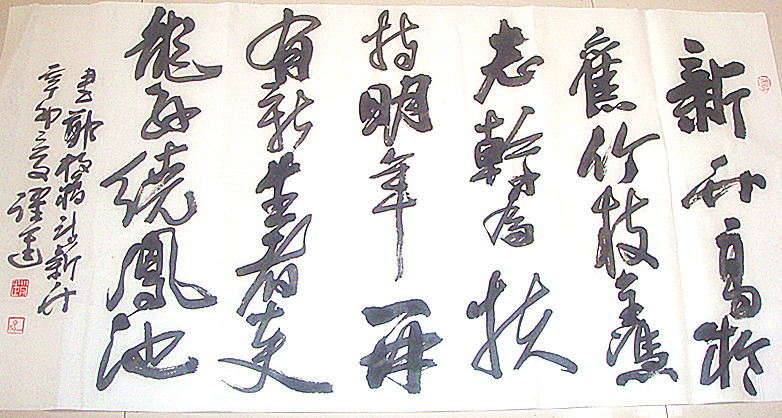 新竹高於
舊竹枝全憑
老幹為扶
持明年再
有新生者十丈
龍孫繞鳳池
書鄭板橋詩新竹
辛卯夏